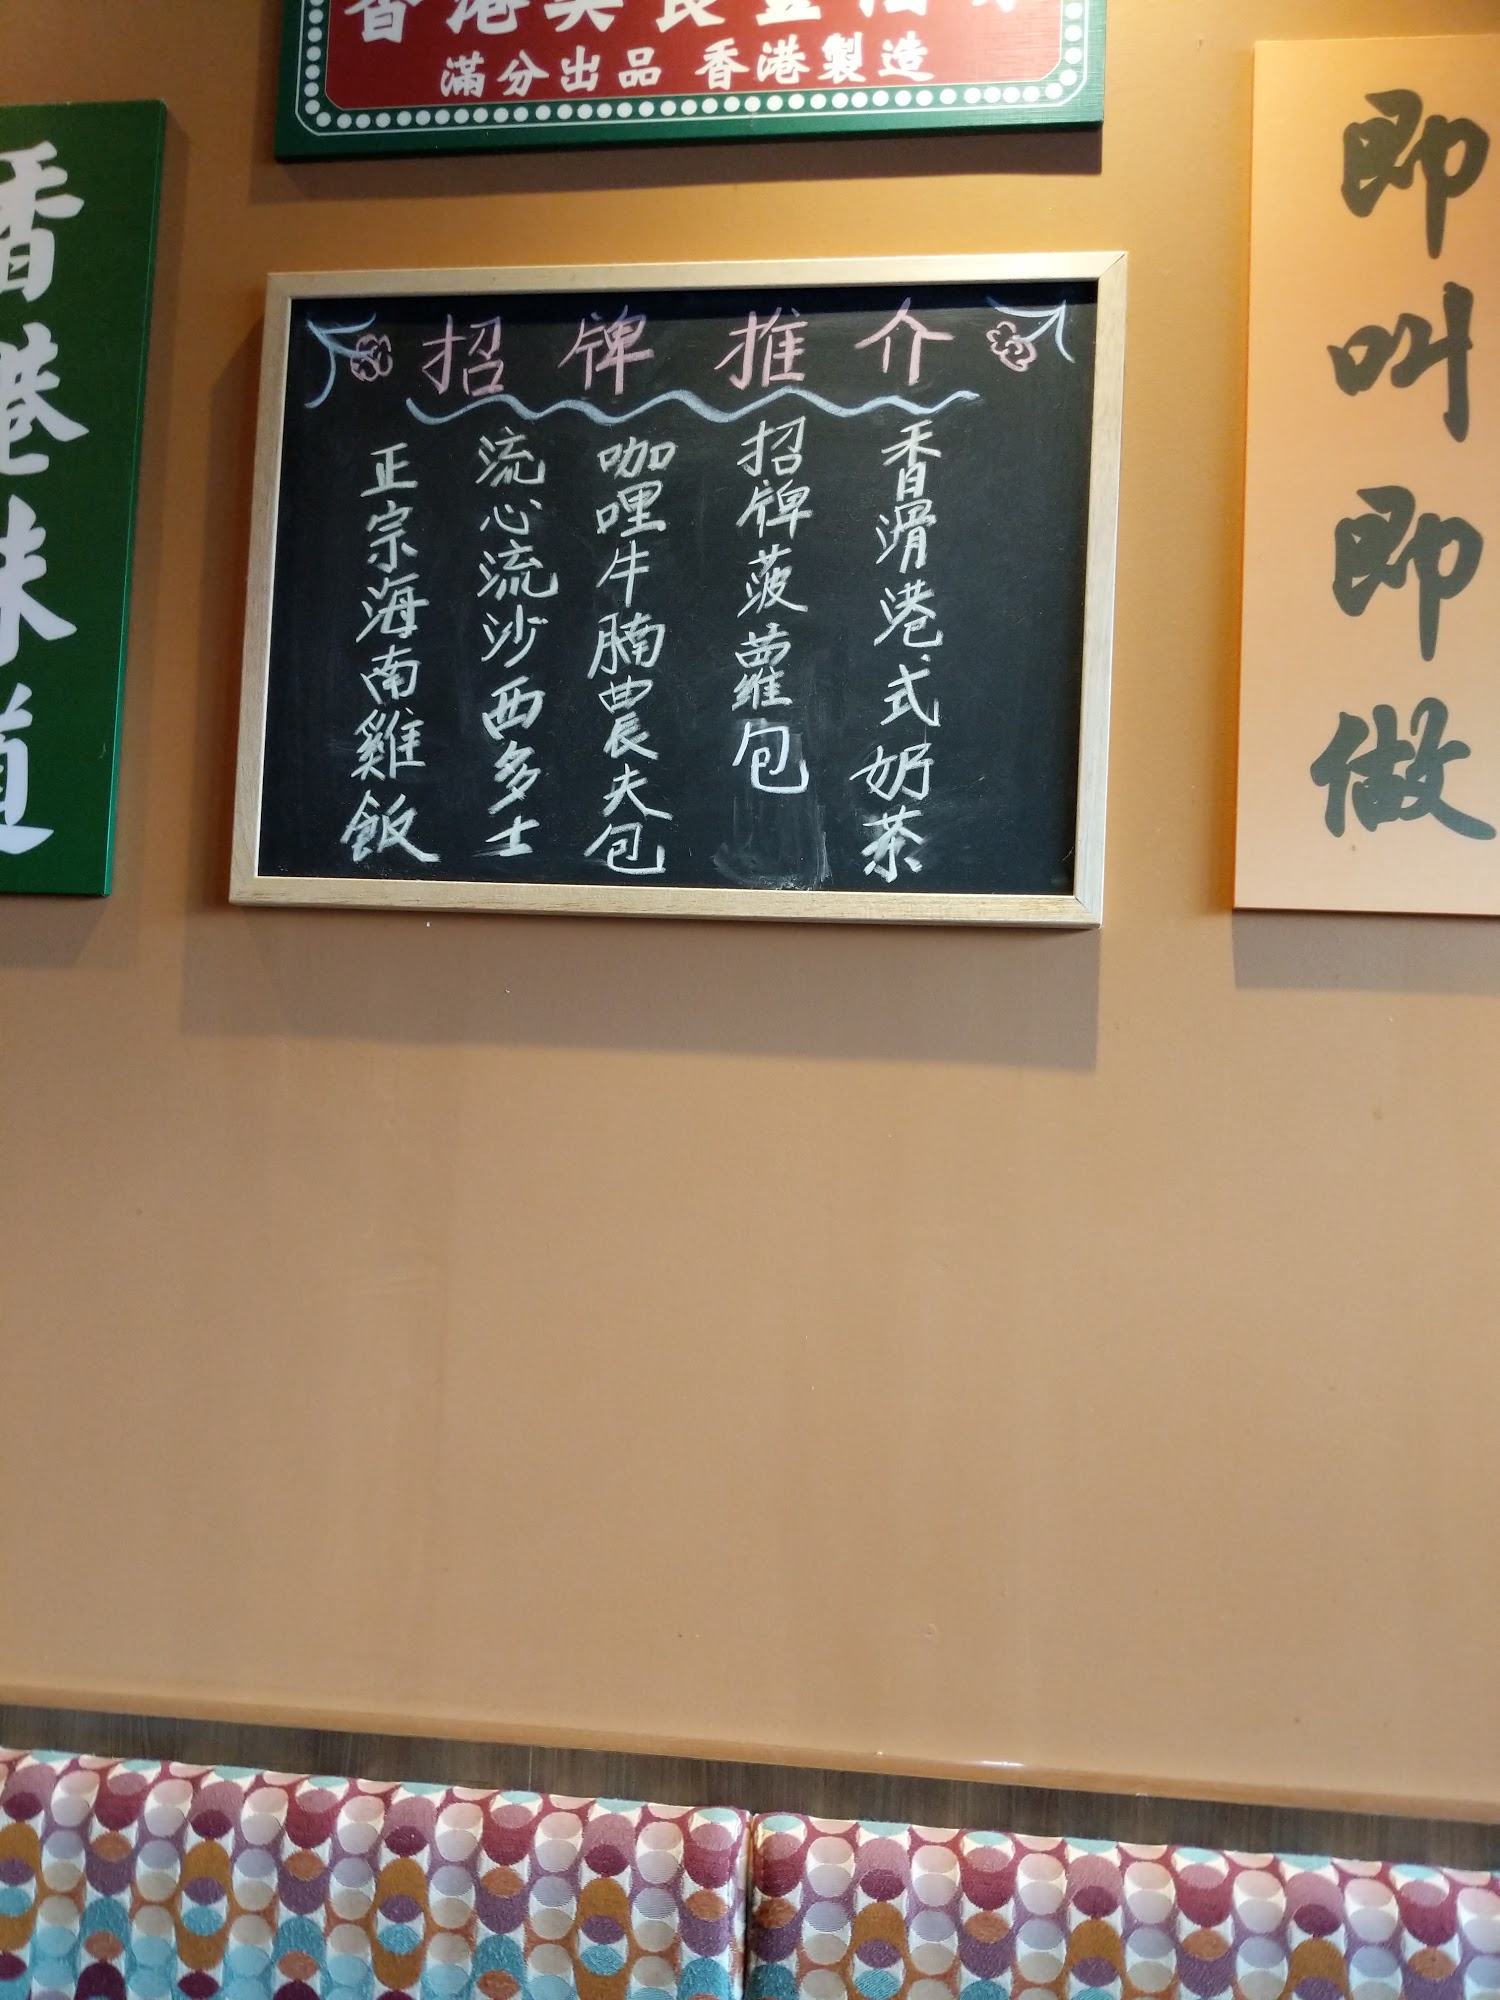 滿分出品 香港製造
招牌推介
香滑港式奶茶
招牌菠蘿包
咖哩牛腩農夫包
流心流沙西多士
正宗海南雞飯
即叫即做
香港味道